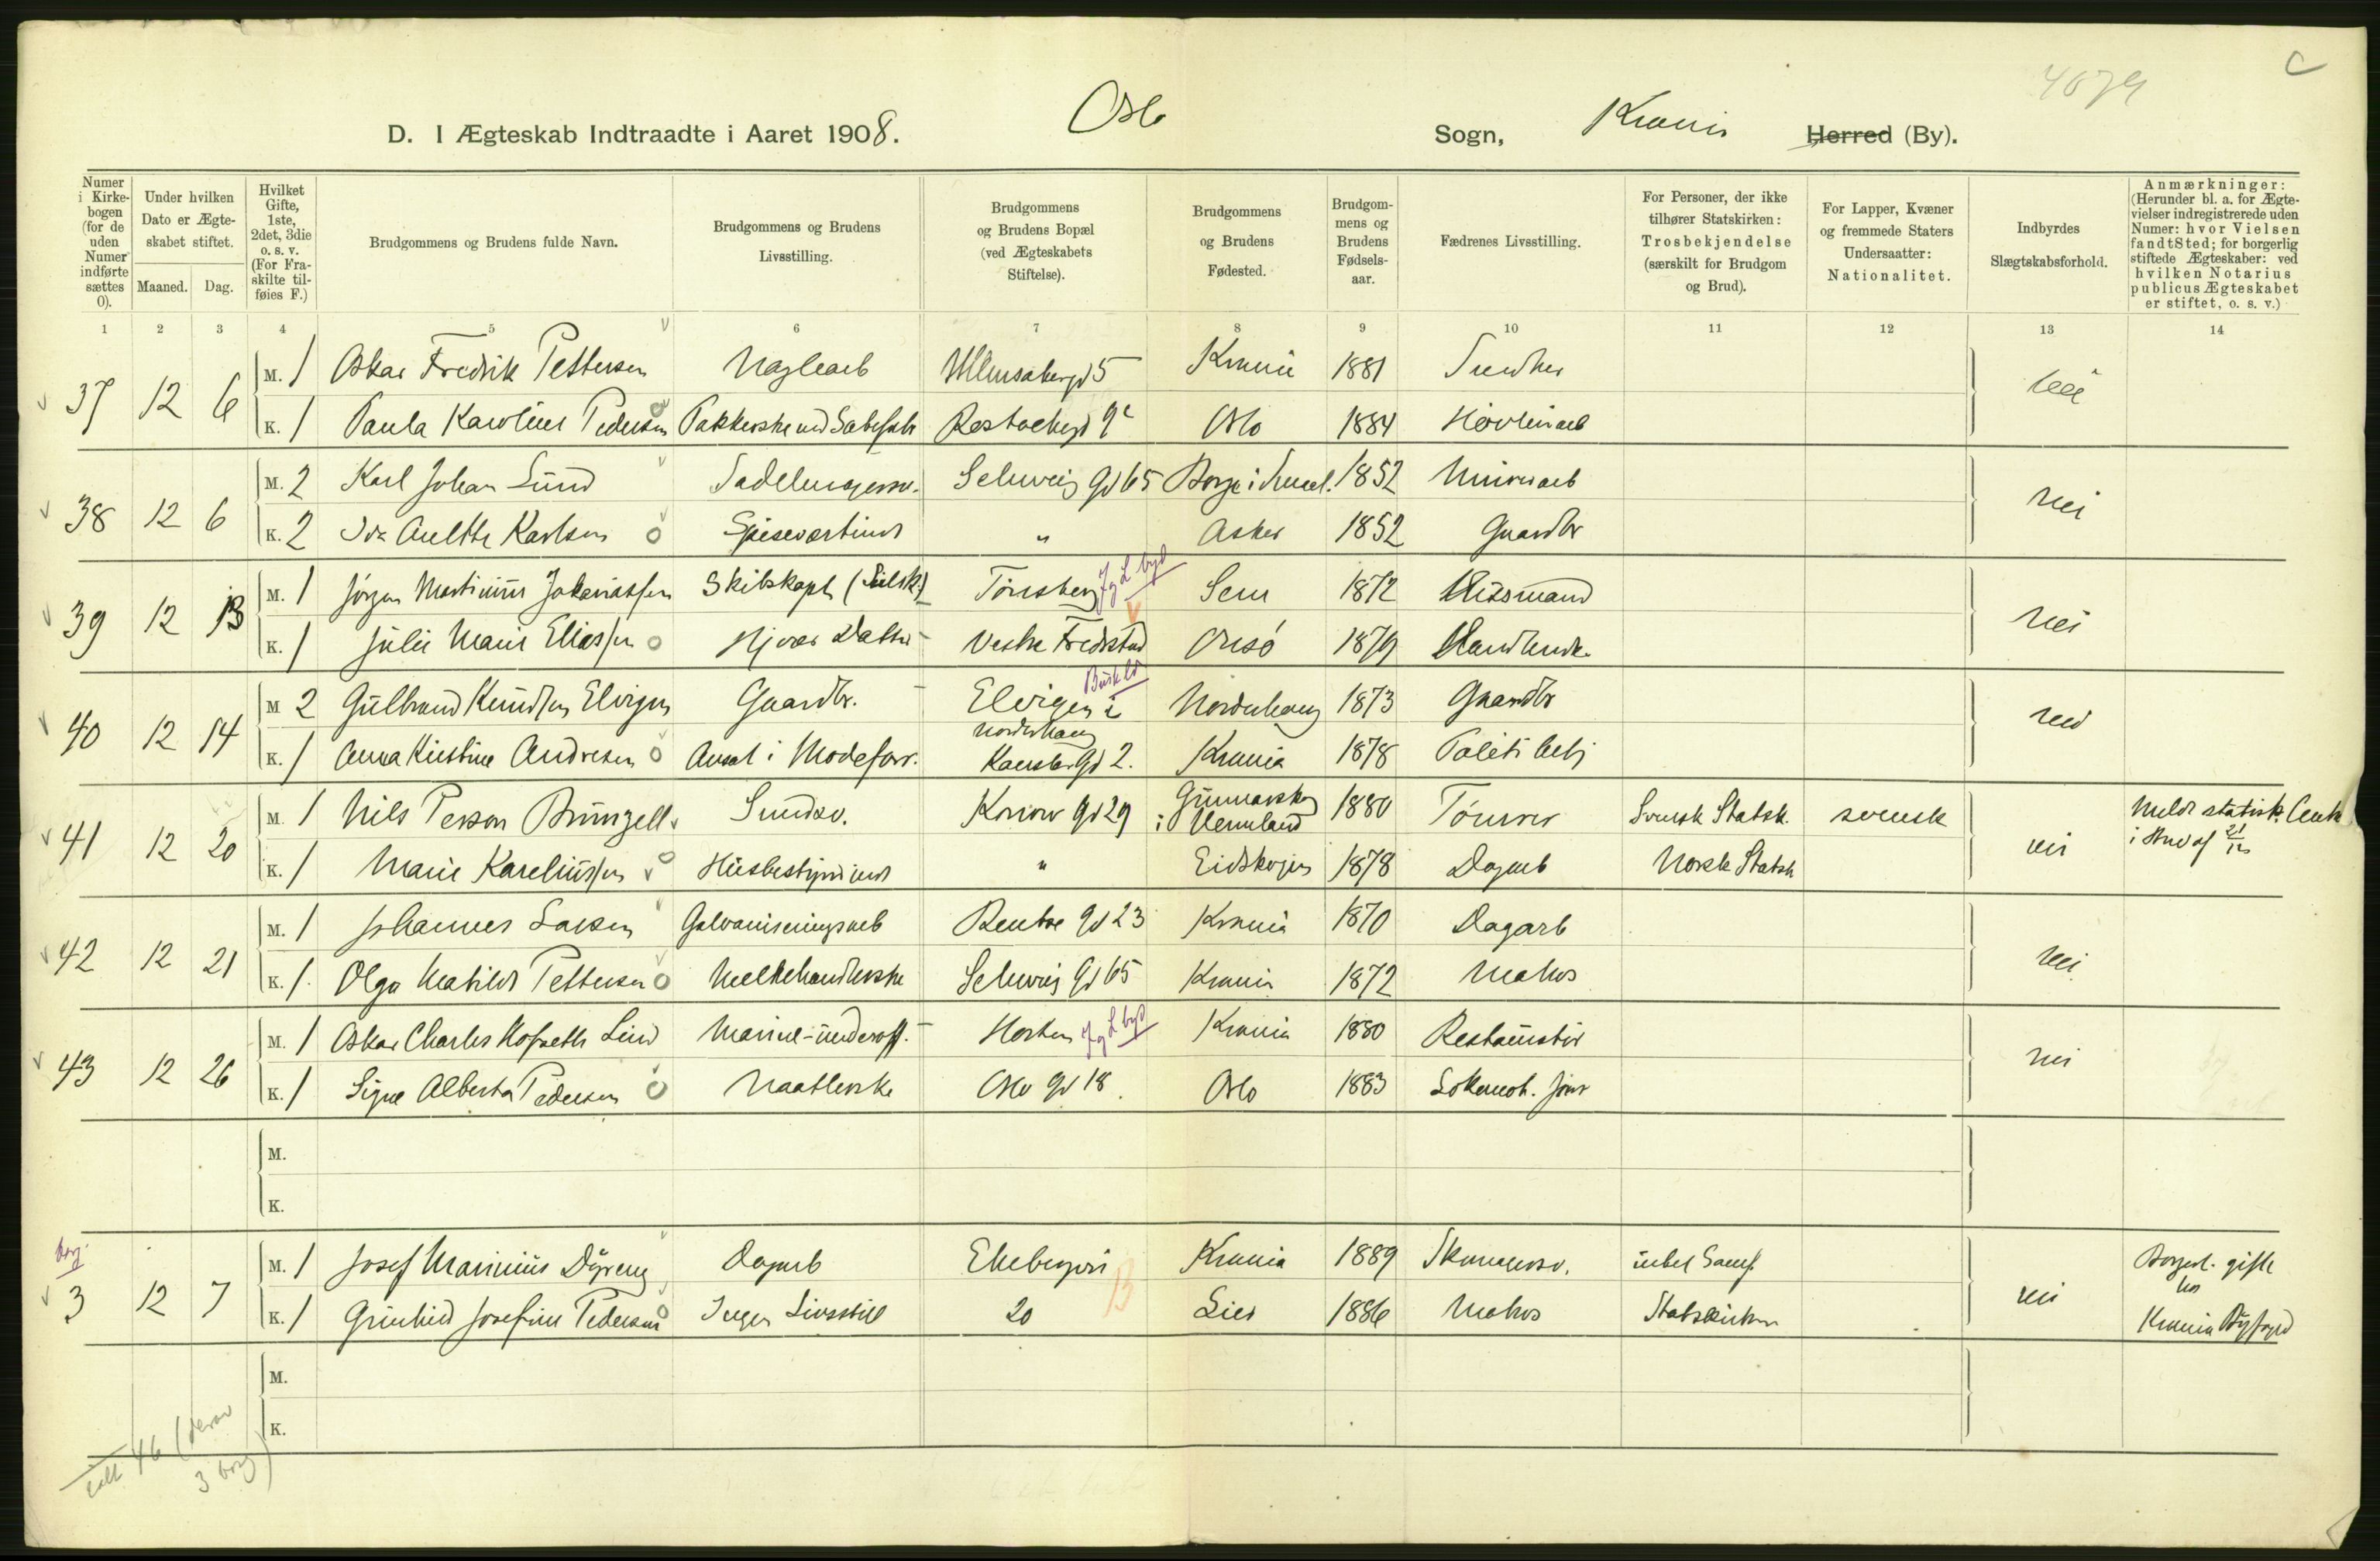 4079
C
D. I Ægteskab Indtraadte i Aaret 1908. Oslo Sogn, Krania Herred (By).
Numer i Kirkebogen (for de uden Numer indførte sættes 0).
Under hvilken Dato er Ægteskabet stiftet.
Maaned. Dag.
Hvilket Gifte, 1ste, 2det, 3die o. s. v. (For Fraskilte tilføies F.)
Brudgommens og Brudens fulde Navn.
Brudgommens og Brudens Livsstilling.
Brudgommens og Brudens Bopæl (ved Ægteskabets Stiftelse).
Brudgommens og Brudens Fødested.
Brudgommens og Brudens Fødselsaar.
Fædrenes Livsstilling.
For Personer, der ikke tilhører Statskirken: Trosbekjendelse (særskilt for Brudgom og Brud).
For Lapper, Kvæner og fremmede Staters Undersaatter: Nationalitet.
Indbyrdes Slægtskabsforhold.
Anmærkninger: (Herunder bl. a. for Ægtevielser indregistrerede uden Numer: hvor Vielsen fandt Sted; for borgerlig stiftede Ægteskaber: ved hvilken Notarius publicus Ægteskabet er stiftet, o. s. v.)
1 2 3 4 5 6 7 8 9 10 11 12 13 14
37 12 6 M. 1 Oskar Fredrik Pettersen Naglearb 5 Krania 1881 nei
K. 1 Paula Karoline Pedersen Pakkerske ved Sæbefabr 9c Oslo 1884 Høvleriarb
38 12 6 M. 2 Karl Johan Lund Sadelmagersv. Schweig Gd 65 Borge i Smaal. 1852 Murerarb nei
K. 2 Ida Anette Karlsen Spiseværtinde " Asker 1852 Gaardbr
39 12 13 M. 1 Jørgen Martinius Jakariassen Skibskapt (Seilsk.) Tønsberg Jg L byd Sem 1872 Husmand nei
K. 1 Julie Marie Eliassen Hjvær Datter Vestre Fredrikstad Onsø 1879 Handlende
40 12 14 M 2 Gulbrand Knudsen Elvigen Gaardbr. Elvigen i Norderhaug Buskld Norderhaug 1873 Gaardbr nei
K. 1 Anna Kirstine Andresen Ansat i Modeforr. Gd 2. Krania 1878 Politibetj
41 12 20 M. 1 Nils Person Brunzell Smedsv. Gd 29 Gunnarskog i Vermland 1880 Tømrer Svensk Statsk. svensk nei Meldt statisk. Centr
K. 1 Marie Kareliussen Husbestyrerinde " Eidskogen 1878 Dagarb Norsk Statsk
42 12 21 M. 1 Johannes Larsen Galvaniseringsarb Gd 23 Krania 1870 Dagarb nei
K. 1 Olga Matilde Pettersen Melkehandlerske Schweig Gd 65 Krania 1872 Matros
43 12 26 M. 1 Oskar Charles Lind Marine-underoff. Horten Jg L byd Krania 1880 Restauratør nei
K. 1 Signe Alberta Pedersen Naatlerske Oslo Gd 18. Oslo 1883 Lokomot. fører
M.
K.
borg.
3 12 7 M. 1 Josef Marinius Dyreng Dagarb Ekebergvei Krania 1889 Skomagersv. nei Borgerl. gift hos
K. 1 Gunhild Josefine Pedersen Ingen Livsstill 20 Lier 1886 Matros Statskirken Krania Byfoged
M.
K.
ialt 46 (derav
3 borg)